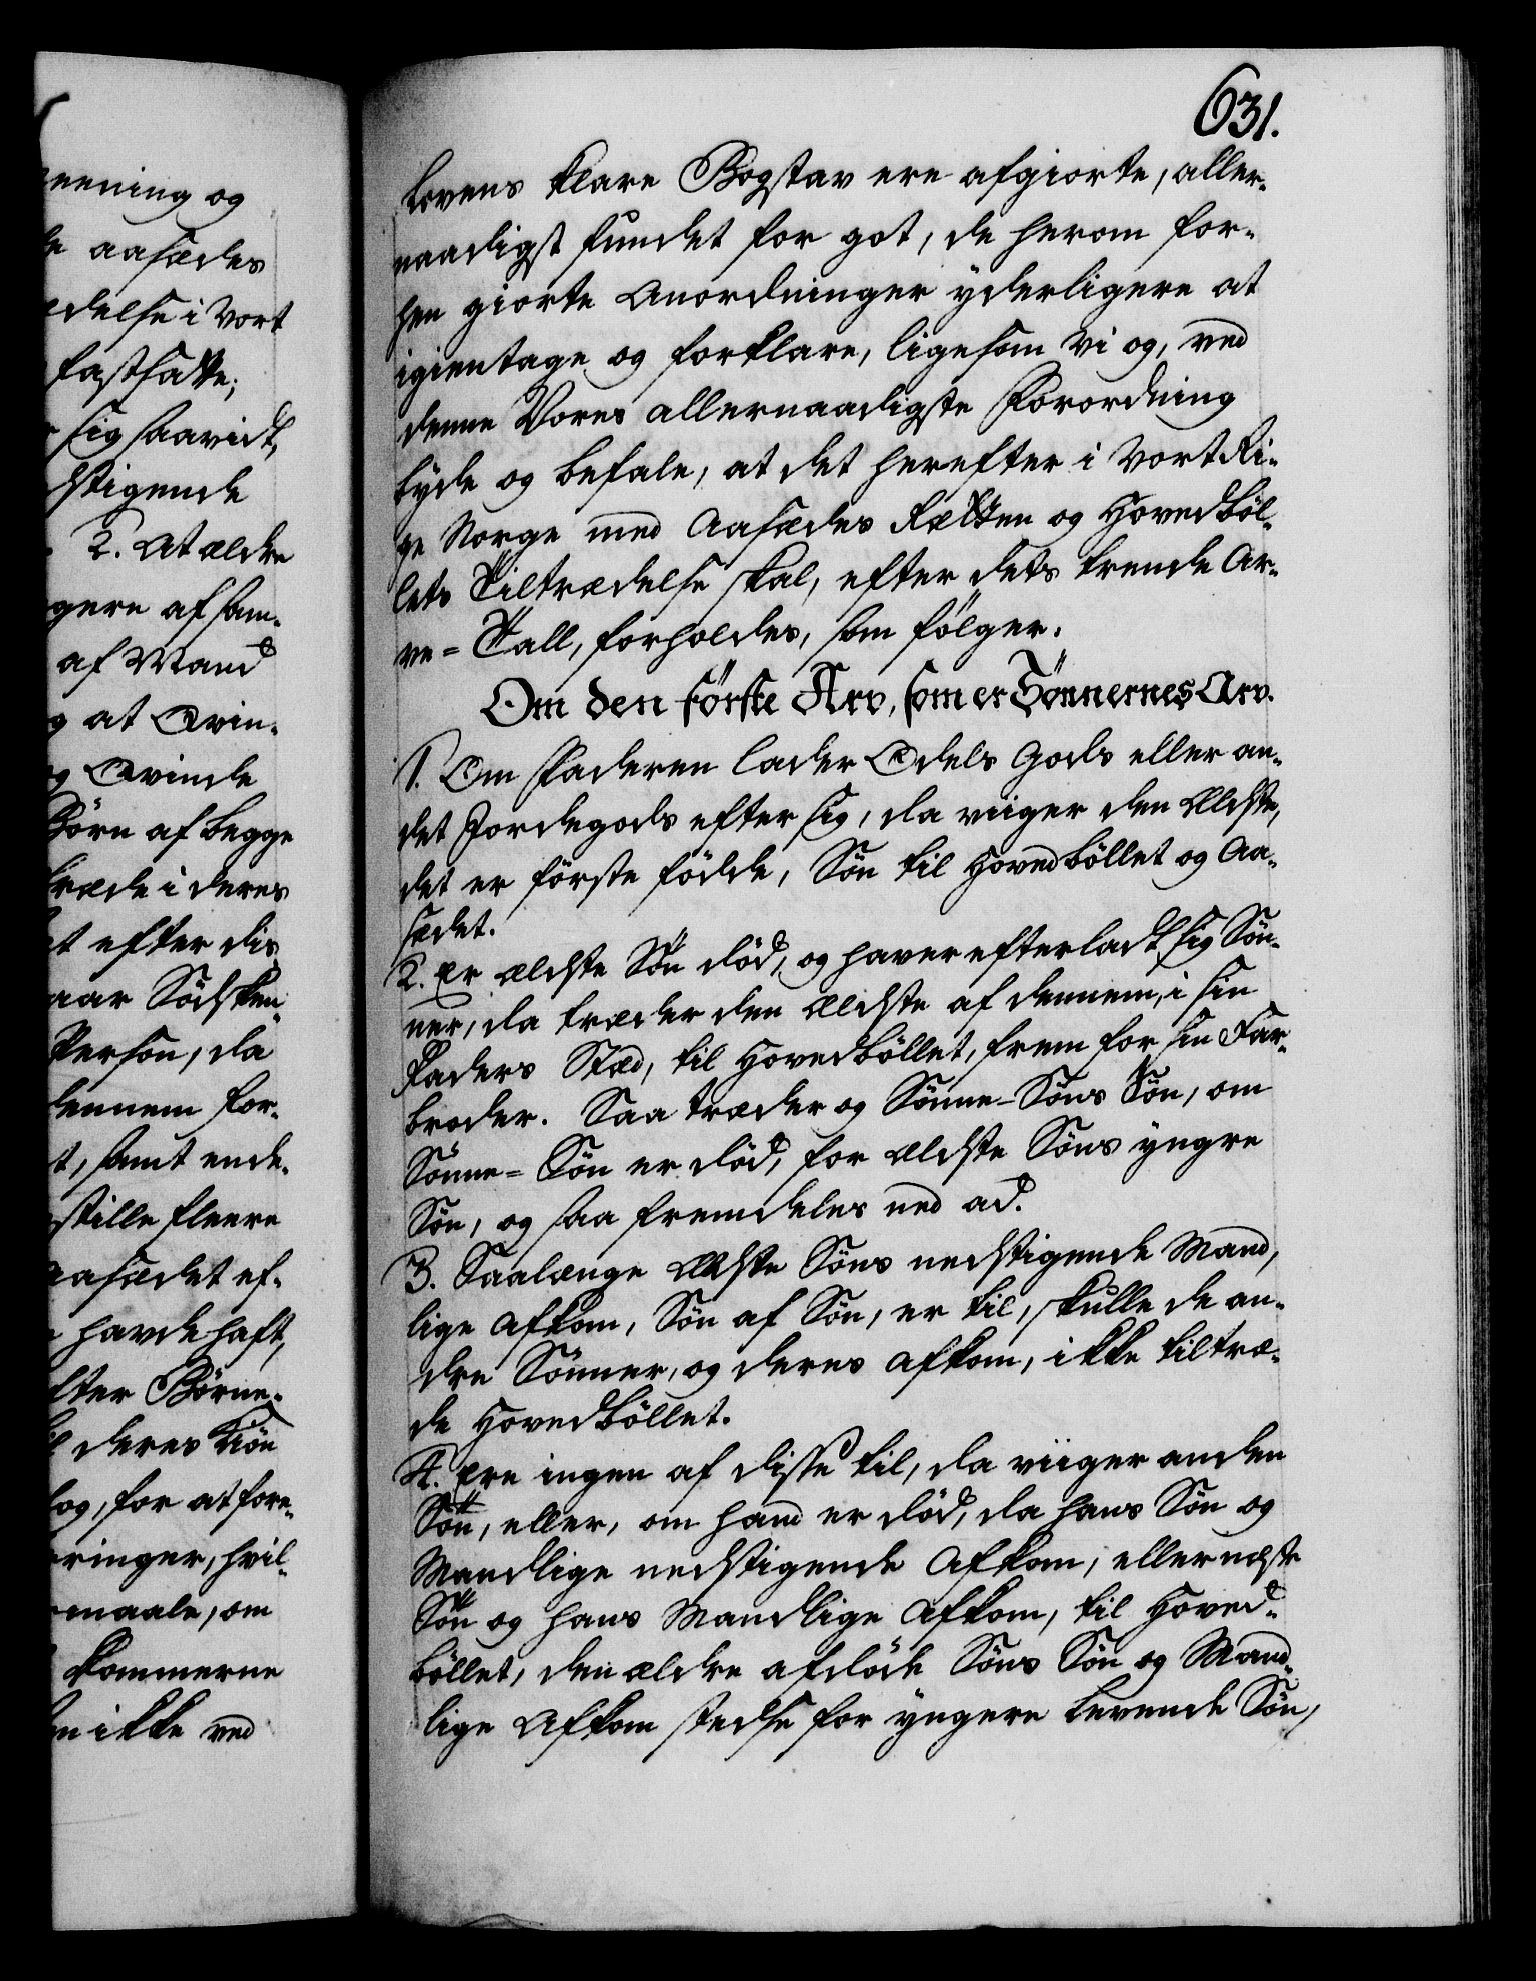 neening og
de aasædes
ædelse i Vort
fastsatte;
sig saavidt,
dstigende
2. At ældre
gere af sam-
af Mand
g at Qvin-
g Qvinde
Börn af begge
træde i deres
et efter dis
naar Södsken
Person, da
dennem for-
t, samt ende-
stille fleere
aasædet ef-
havde haft,
fter Börne-
til deres Kiön
log, for at fore-
ringer, hvil-
maale, om
kommerne
en ikke ved
631.
Lovens klare Bogstav ere afgiorte, aller-
naadigst fundet for got, de herom for-
hen giorte Anordninger yderligere at
igientage og forklare, ligesom Vi og, ved
denne Vores allernaadigste Forordning
byde og befale, at det herefter i Vort Ri-
ge Norge med Aasædes Retten og Hovedböl-
lets Tiltrædelse skal, efter dets trende Ar-
ve-Tall, forholdes, som fölger.
Om den förste Arv, som er Sönnernes Arv.
1. Om Faderen lader Odels Gods eller an-
det Jordegods efter sig, da viiger den Ældste,
det er förste födde, Sön til Hovedböllet og Aa-
sædet.
2. Er ældste Sön död, og haver efterladt sig Sön-
ner, da træder den Ældste af dennem, i sin
Faders Stæd, til Hovedböllet, frem for sin Far-
broder. Saa træder og Sönne-Söns Sön, om
Sönne-Sön er död, for Ældste Söns yngre
Sön, og saa fremdeles ned ad.
3. Saalænge Ældste Söns nedstigende Mand-
lige Afkom, Sön af Sön, er til, skulle de an-
dre Sönner, og deres Afkom, ikke tiltræ-
de Hovedböllet.
4. Ere ingen af disse til, da viiger anden
Sön, eller, om hand er död, da hans Sön og
Mandlige nedstigende Afkom, eller næste
Sön og hans Mandlige Afkom, til Hoved-
böllet, den ældre afdöde Söns Sön og Mand-
lige Afkom stedse for yngere levende Sön,